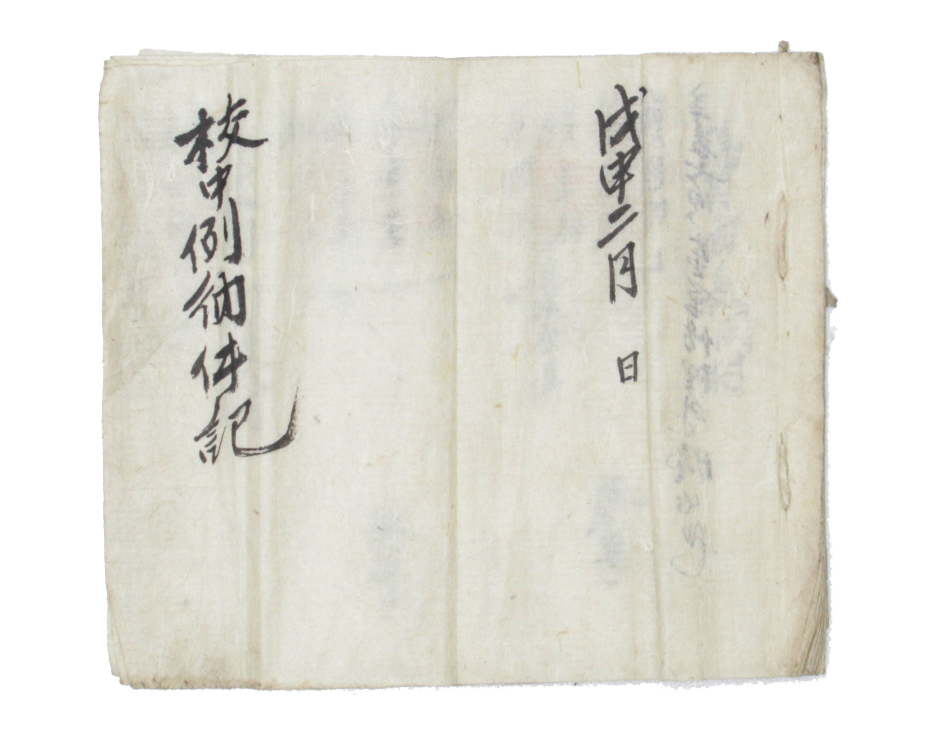 戊申二月 日
校中例納件記